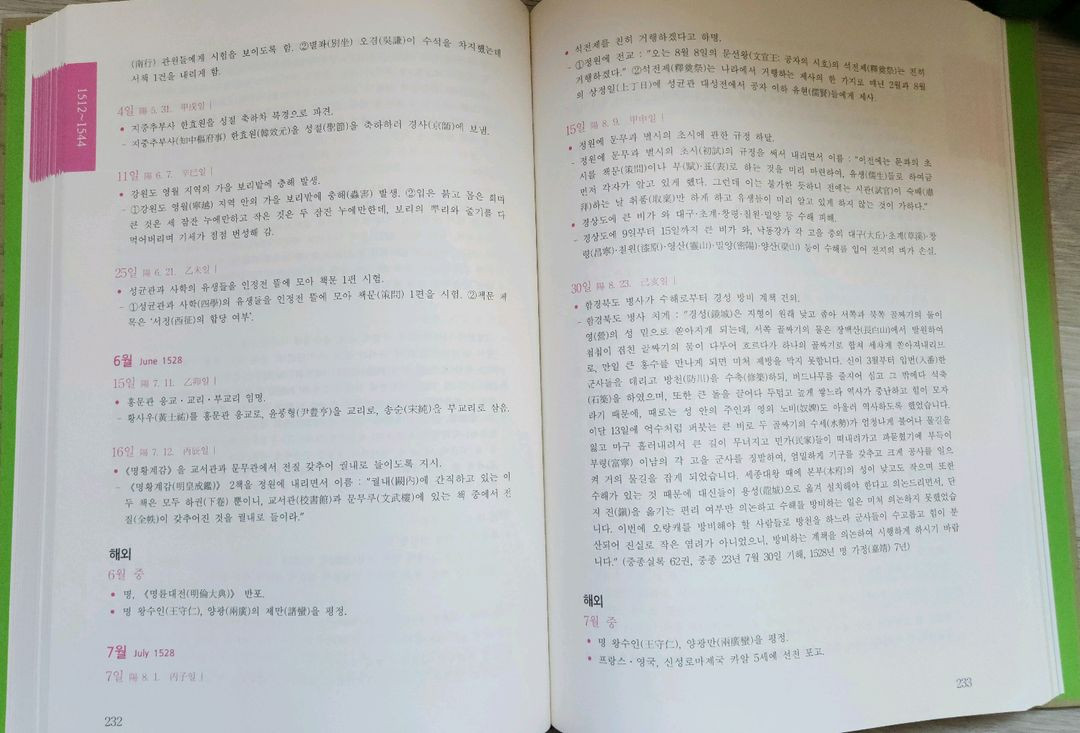 (南行) 관원들에게 시험을 보이도록 함. ②별좌(別坐) 오겸(吳謙)이 수석을 차지했는데
서책 1건을 내려게 함.
1512~1544
4일 陽 5. 31. 甲戌일 |
• 지중추부사 한효원을 성절 축하차 북경으로 파견.
- 지중추부사(知中樞府事) 한효원(韓效元)을 성절(聖節)을 축하하러 경사(京師)에 보냄.
11일 陽 6. 7. 辛巳일 |
• 강원도 영월 지역의 가을 보리밭에 충해 발생.
- ①강원도 영월(寧越) 지역 안의 가을 보리밭에 충해(蟲害) 발생. ②입은 붉고 몸은 희며
큰 것은 세 잠잔 누에만하고 작은 것은 두 잠잔 누에만한데, 보리의 뿌리와 줄기를 다
먹어버리며 기세가 점점 번성해 감.
25일 陽 6. 21. 乙未일 |
• 성균관과 사학의 유생들을 인정전 뜰에 모아 책문 1편 시험.
- ①성균관과 사학(四學)의 유생들을 인정전 뜰에 모아 책문(策問) 1편을 시험. ②책문 제
목은 ‘서정(西征)의 합당 여부’.
6월 June 1528
15일 陽 7. 11. 乙卯일 |
• 홍문관 응교·교리·부교리 임명.
- 황사우(黃士祐)를 홍문관 응교로, 윤풍형(尹豊亨)을 교리로, 송순(宋純)을 부교리로 삼음.
16일 陽 7. 12. 丙辰일 |
• 《명황계감》을 교서관과 문무관에서 전질 갖추어 궐내로 들이도록 지시.
- 《명황계감(明皇戒鑑)》 2책을 정원에 내리면서 이름 : “궐내(闕內)에 간직하고 있는 이
두 책은 모두 하권(下卷) 뿐이니, 교서관(校書館)과 문무루(文武樓)에 있는 책 중에서 전
질(全帙)이 갖추어진 것을 궐내로 들이라.”
해외
6월 중
• 명, 《명륜대전(明倫大典)》 반포.
• 명 왕수인(王守仁), 양광(兩廣)의 제만(諸蠻)을 평정.
7월 July 1528
7일 陽 8. 1. 丙子일 |
232
• 석전제를 친히 거행하겠다고 하명.
- ①정원에 전교 : “오는 8월 8일의 문선왕(文宣王: 공자의 시호)의 석전제(釋奠祭)는 친히
거행하겠다.” ②석전제(釋奠祭)는 나라에서 거행하는 제사의 한 가지로 매년 2월과 8월
의 상정일(上丁日)에 성균관 대성전에서 공자 이하 유현(儒賢)들에게 제사.
15일 陽 8. 9. 甲申일 |
• 정원에 문무과 별시의 초시에 관한 규정 하달.
- 정원에 문무과 별시의 초시(初試)의 규정을 써서 내리면서 이름 : “이전에는 문과의 초
시를 책문(策問)이나 부(賦)·표(表)로 하는 것을 미리 마련하여, 유생(儒生)들로 하여금
먼저 각자가 알고 있게 했다. 그런데 이는 불가한 듯하니 전에는 시관(試官)이 숙배(肅
拜)하는 날 취품(取稟)만 하게 하고 유생들이 미리 알고 있게 하지 않는 것이 가하다.”
• 경상도에 큰 비가 와 대구·초계·창령·칠원·밀양 등 수해 피해.
- 경상도에 9일부터 15일까지 큰 비가 와, 낙동강가 각 고을 중의 대구(大丘)·초계(草溪)·창
령(昌寧)·칠원(漆原)·영산(靈山)·밀양(密陽)·양산(梁山) 등이 수해를 입어 전지의 벼가 손실.
30일 陽 8. 23. 己亥일 |
• 함경북도 병사가 수해로부터 경성 방비 계책 건의.
- 함경북도 병사 치계 : “경성(鏡城)은 지형이 원래 낮고 좁아 서쪽과 북쪽 골짜기의 물이
영(營)의 성 밑으로 쏟아지게 되는데, 서쪽 골짜기의 물은 장백산(長白山)에서 발원하여
첩첩이 겹친 골짜기의 물이 다투어 흐르다가 하나의 골짜기로 합쳐 세차게 쏟아져내리므
로, 만일 큰 홍수를 만나게 되면 미처 제방을 막지 못합니다. 신이 3월부터 입번(入番)한
군사들을 데리고 방천(防川)을 수축(修築)하되, 버드나무를 줄지어 심고 그 밖에다 석축
(石築)을 하였으며, 또한 큰 돌을 끌어다 두텁고 높게 쌓느라 역사가 중난하고 힘이 모자
라기 때문에, 때로는 성 안의 주인과 영의 노비(奴婢)도 아울러 역사하도록 했었습니다.
이달 13일에 억수처럼 퍼붓는 큰 비로 두 골짜기의 수세(水勢)가 엄청나게 불어나 물길을
잃고 마구 흘러내려서 큰 길이 무너지고 민가(民家)들이 떠내려가고 파묻혔기에 부득이
부령(富寧) 이남의 각 고을 군사를 징발하여, 엄밀하게 기구를 갖추고 크게 공사를 일으
켜 거의 물길을 잡게 되었습니다. 세종대왕 때에 본부(本府)의 성이 낮고도 작으며 또한
수해가 있는 것 때문에 대신들이 용성(龍城)으로 옮겨 설치해야 한다고 의논드리면서, 단
지 진(鎭)을 옮기는 편리 여부만 의논하고 수해를 방비하는 일은 미처 의논하지 못했었습
니다. 이번에 오랑캐를 방비해야 할 사람들로 방천을 하느라 군사들이 수고롭고 힘이 분
산되어 진실로 작은 염려가 아니었으니, 방비하는 계책을 의논하여 시행하게 하시기 바랍
니다.” (중종실록 62권, 중종 23년 7월 30일 기해, 1528년 명 가정(嘉靖) 7년)
해외
7월 중
• 명 왕수인(王守仁), 양광만(兩廣蠻)을 평정.
• 프랑스·영국, 신성로마제국 카알 5세에 선전 포고.
233